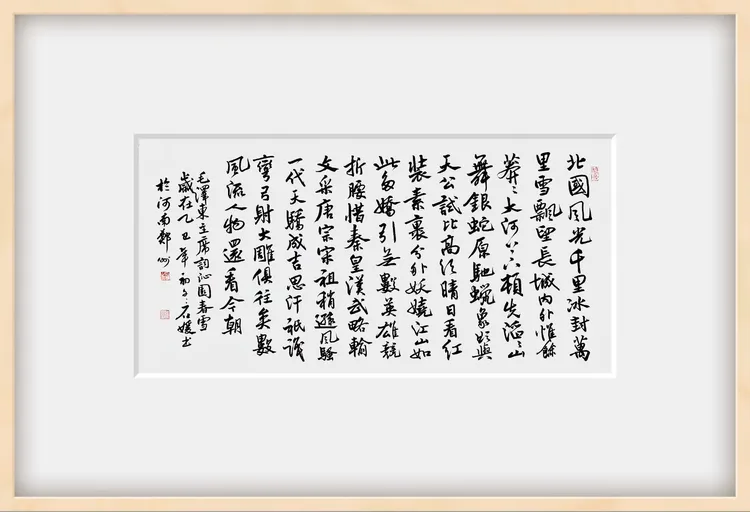 北國風光千里冰封萬
里雪飄望長城内外惟餘
莽〻大河上下頓失滔〻山
舞銀蛇原馳蠟象欲與
天公試比高須晴日看紅
裝素裹分外妖嬈江山如
此多嬌引無數英雄競
折腰惜秦皇漢武略輸
文采唐宗宋祖稍遜風騷
一代天驕成吉思汗祇識
彎弓射大雕俱往矣數
風流人物還看今朝
毛澤東主席詞沁園春雪
歲在乙巳年初冬石媛書
於河南鄭州